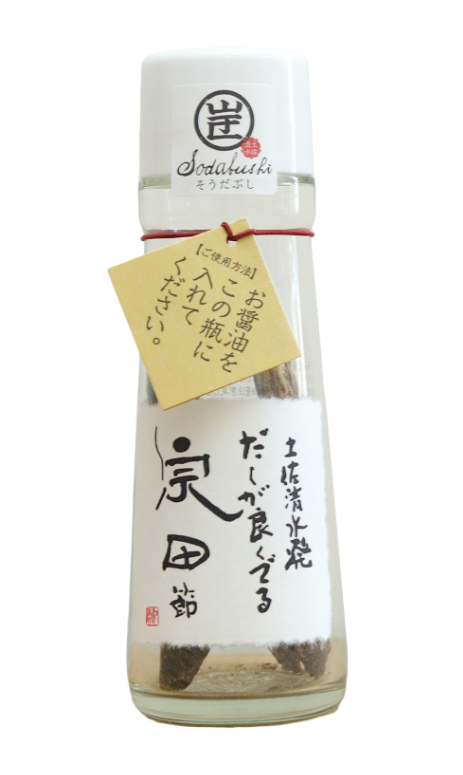 Sodabushi
そうだぶし
【ご使用方法】
お醤油を
この瓶に
入れて
ください。
土佐清水発
だしが良くでる
宗田節